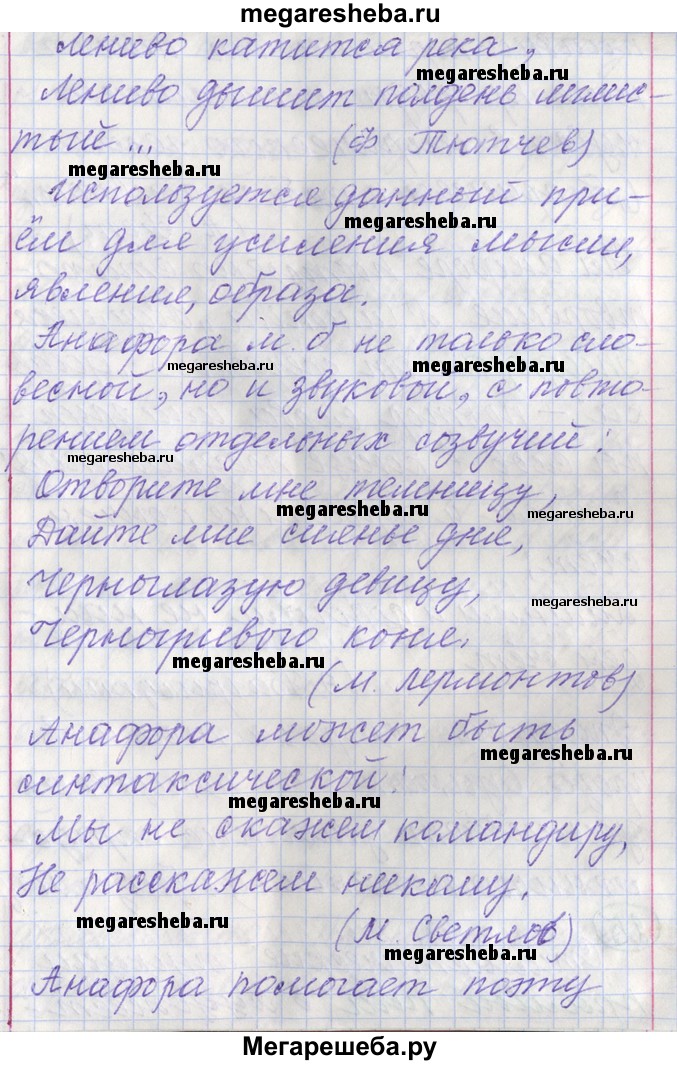 megaresheba.ru
Лениво катится река,
megaresheba.ru
Лениво дышит полдень мглис-
тый... (Ф Тютчев)
megaresheba.ru
Используется данный при-
megaresheba.ru
ём для усиления мысли,
явление, образа.
Анафора м. б не только сло-
megaresheba.ru megaresheba.ru
весной, но и звуковой, с повто-
рением отдельных созвучий:
megaresheba.ru
Отворите мне темницу,
megaresheba.ru megaresheba.ru
Дайте мне сиянье дня,
Черноглазую девицу,
megaresheba.ru
Черногривого коня.
megaresheba.ru
(М. Лермонтов)
Анафора может быть
megaresheba.ru
синтаксической:
megaresheba.ru
Мы не скажем командиру,
Не расскажем никому.
megaresheba.ru
(М. Светлов)
megaresheba.ru
Анафора помогает поэту
Мегарешеба.ру